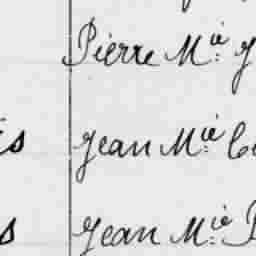 Pierre M.ie J
is Jean M.ie Co
s Jean M.ie P